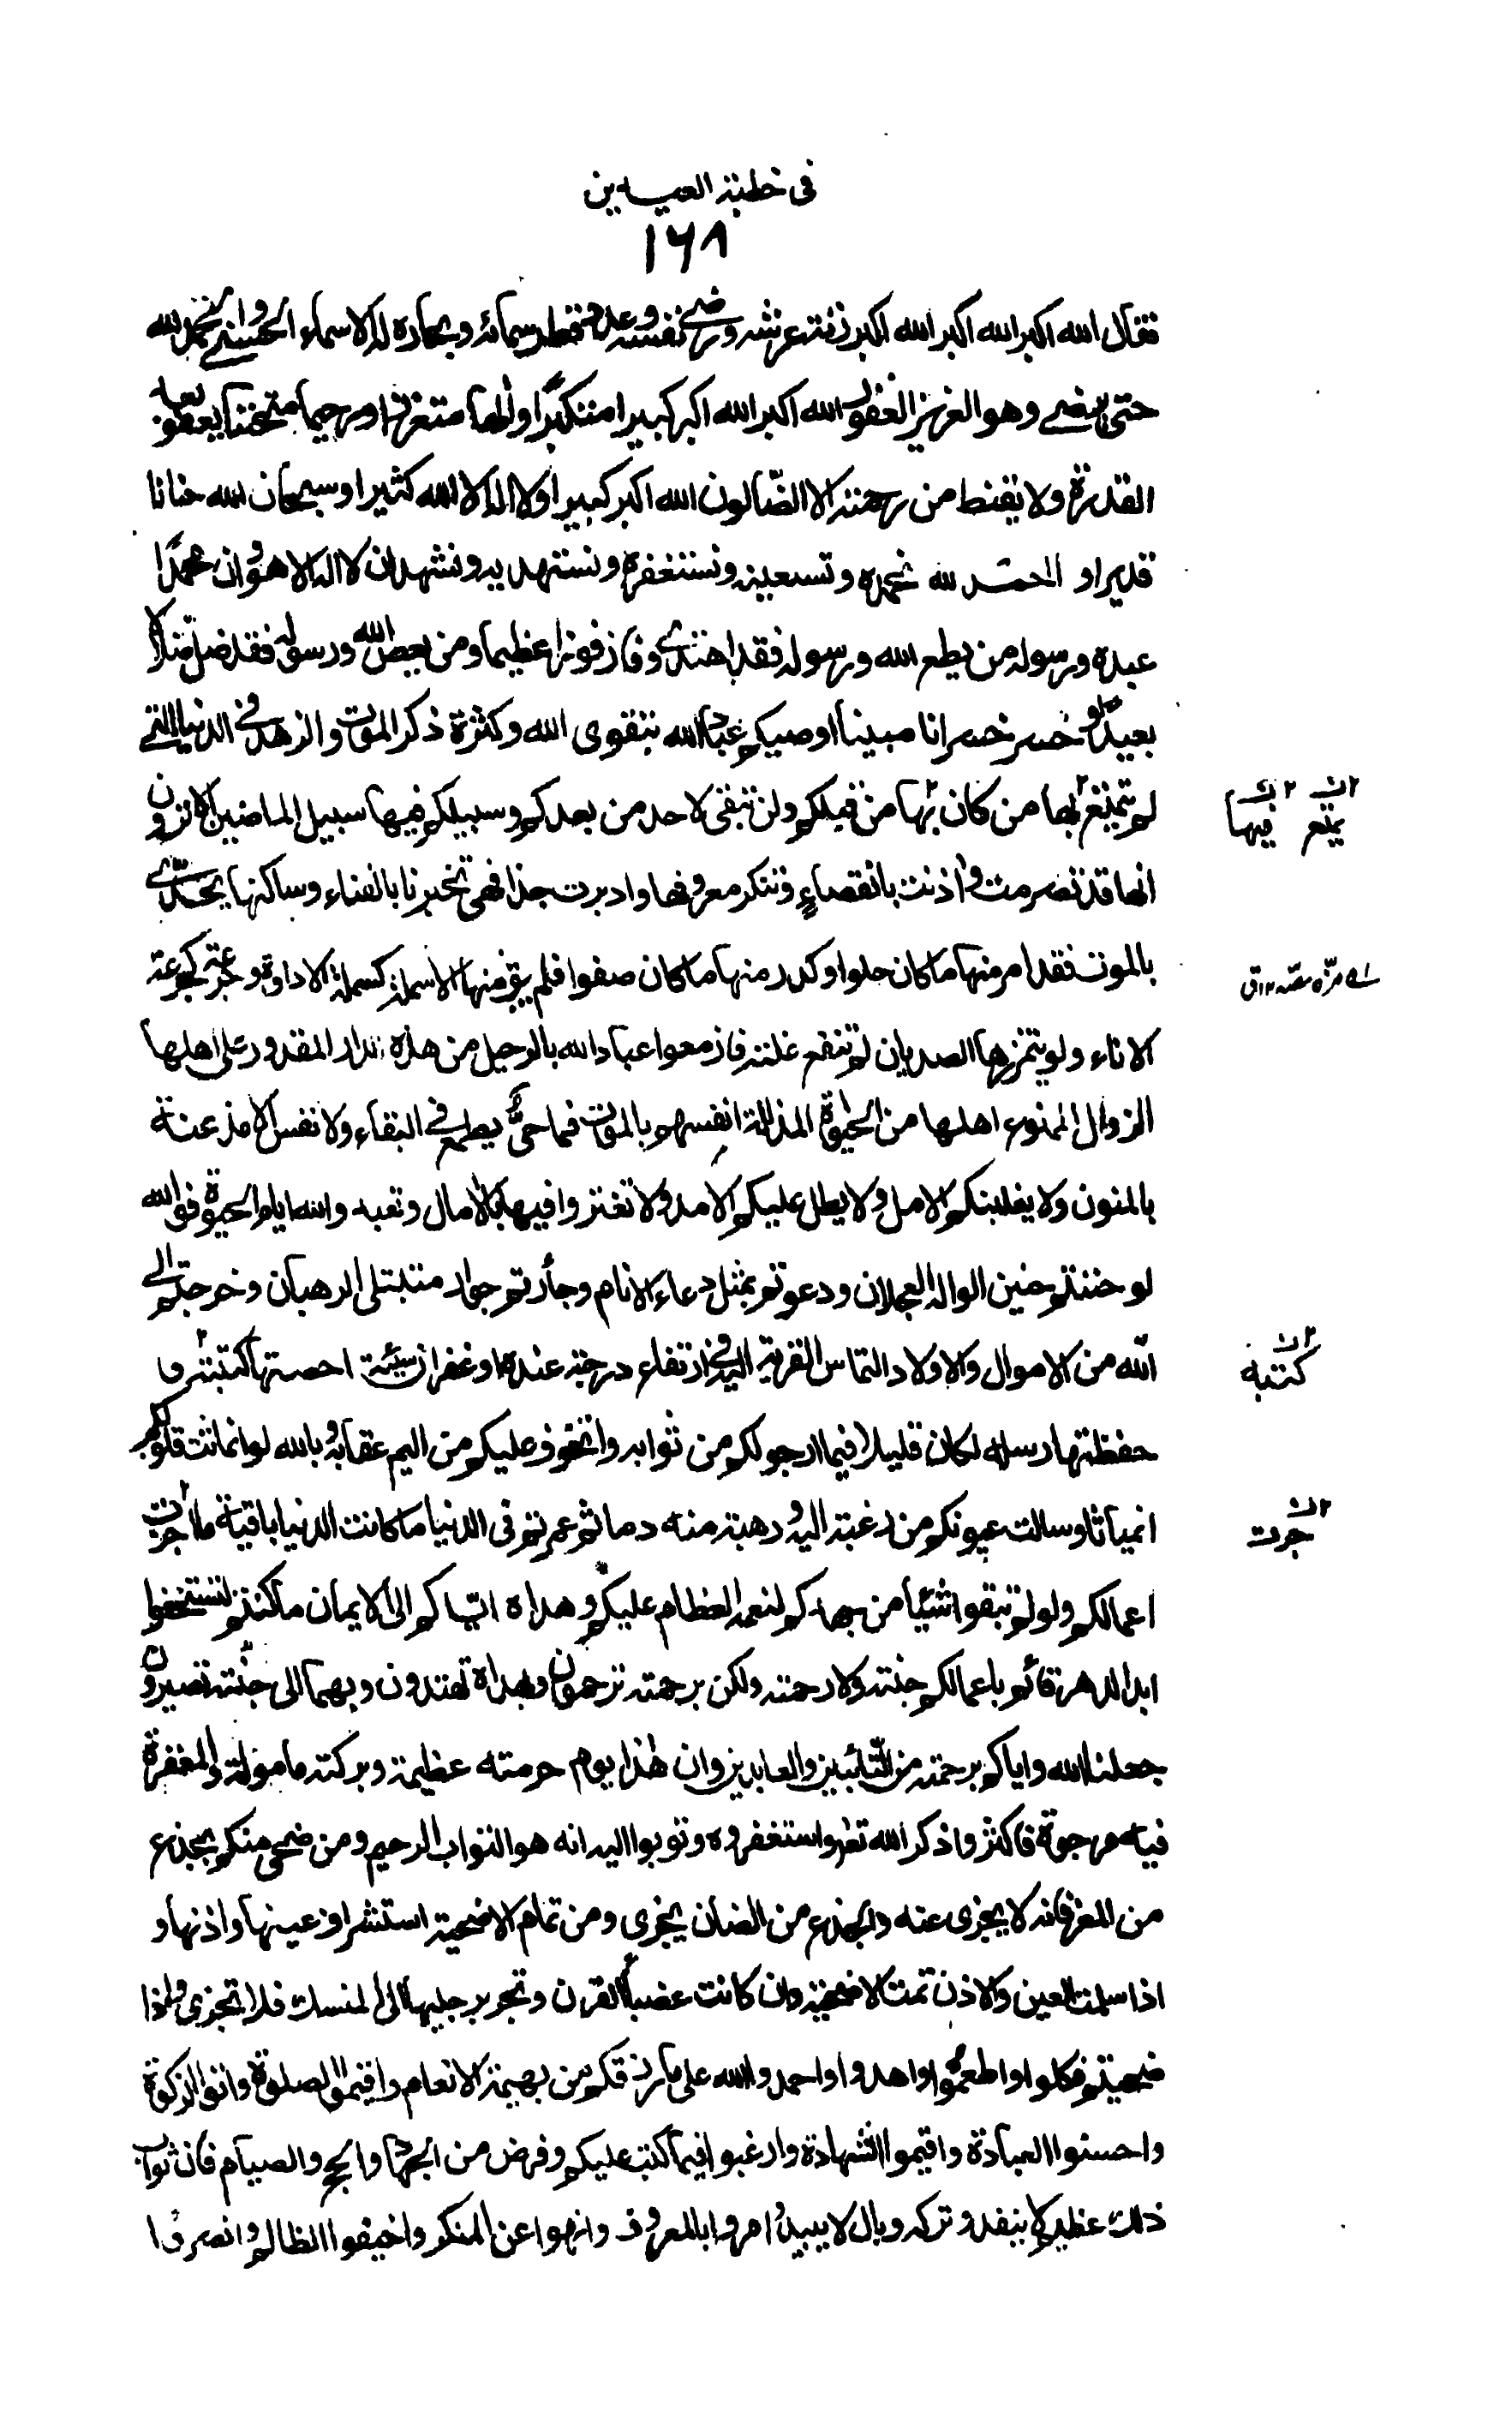 فى خطبة العيدين
١٦٨
فقال الله اكبر الله اكبر الله اكبر زنة عرشه و رضى نفسه و عدد قطر سمائه و بحاره له الاسماء الحسنى و الحمد لله
حتى يرضى و هو العزيز الغفور الله اكبر الله اكبر كبيرا متكبرا و الها متعززا و رحيما متحننا يعفو بعد
القدرة و لا يقنط من رحمته الا الضالون الله اكبر كبيرا و لا اله الا الله كثيرا و سبحان الله حنانا
قديرا و الحمد لله نحمده و نستعينه و نستغفره و نستهديه و نشهد ان لا اله الا هو و ان محمدا
عبده و رسوله من يطع الله و رسوله فقد اهتدى و فاز فوزا عظيما و من يعص الله و رسوله فقد ضل ضلالا
بعيدا و خسر خسرانا مبينا اوصيكم عباد الله بتقوى الله و كثرة ذكر الموت و الزهد فى الدنيا التى
لم يتمتع بها من كان بها من قبلكم و لن تبقى لاحد من بعدكم و سبيلكم فيها سبيل الماضين الا ترون
يمتع فيها
انها قد تصرمت و اذنت بانقضاء و تنكر معروفها و ادبرت جذا فهى تخبرنا بالفناء و ساكنها يحدى
بالموت فقد امر منها ما كان حلوا و كدر منها ما كان صفوا فلم يبق منها الا سملة كسملة الاداوة و جرعة كجرعة
الاناء و لو يتمززها الصديان لم تنقع غلته فازمعوا عباد الله بالرحيل من هذه الدار المقدور على اهلها
الزوال الممنوع اهلها من الحيوة المذللة انفسهم بالموت فما حى يطمع فى البقاء و لا نفس الا مذعنة
بالمنون و لا يغلبنكم الامل و لا يطل عليكم الامد و لا تغتروا فيها بالامال و تعبدوا لله ايام الحيوة فو الله
لو حننتم حنين الواله العجلان و دعوتم بمثل دعاء الانام و جأرتم جوار متبتلى الرهبان و خرجتم الى
الله من الاموال و الاولاد التماس القربة اليه فى ارتفاع درجة عنده او غفران سيئة احصتها كتبته و
كتبه
حفظتها رسله لكان قليلا فيما ارجو لكم من ثوابه و اتخوف عليكم من اليم عقابه و بالله لو انماثت قلوبكم
انمياثا و سالت عيونكم من رغبة اليه و رهبة منه دما ثم عمرتم فى الدنيا ما كانت الدنيا باقية ما جزت
جرت
اعمالكم و لو لم تبقوا شيئا من جهدكم لنعمه العظام عليكم و هداه اياكم الى الايمان ما كنتم لتستحقوا
ابد الدهر قائم باعمالكم جنته و لا رحمته و لكن برحمته ترحمون و بهداه تهتدون و بهما الى جنته تصيرون
جعلنا الله و اياكم برحمته من التائبين و العابدين و ان هذا يوم حرمته عظيمة و بركته مامولة و المغفرة
فيه مرجوة فاكثروا ذكر الله تعالى و استغفروه و توبوا اليه انه هو التواب الرحيم و من ضحى منكم بجذع
من المعز فانه لا يجزى عنه و الجذع من الضان يجزى و من تمام الاضحية استشراف عينها و اذنها و
اذا سلمت العين و الاذن تمت الاضحية و ان كانت عضباء القرن و تجر برجليها الى المنسك فلا تجزى و اذا
ضحيتم فكلوا و اطعموا و اهدوا و احمدوا الله على ما رزقكم من بهيمة الانعام و اقيموا الصلوة و اتوا الزكوة
و احسنوا العبادة و اقيموا الشهادة و ارغبوا فيما كتب عليكم و فرض من الجهاد و الحج و الصيام فان ثواب
ذلك عظيم لا ينفد و تركه وبال لا يبيد و امروا بالمعروف و انهوا عن المنكر و اخيفوا الظالم و انصروا